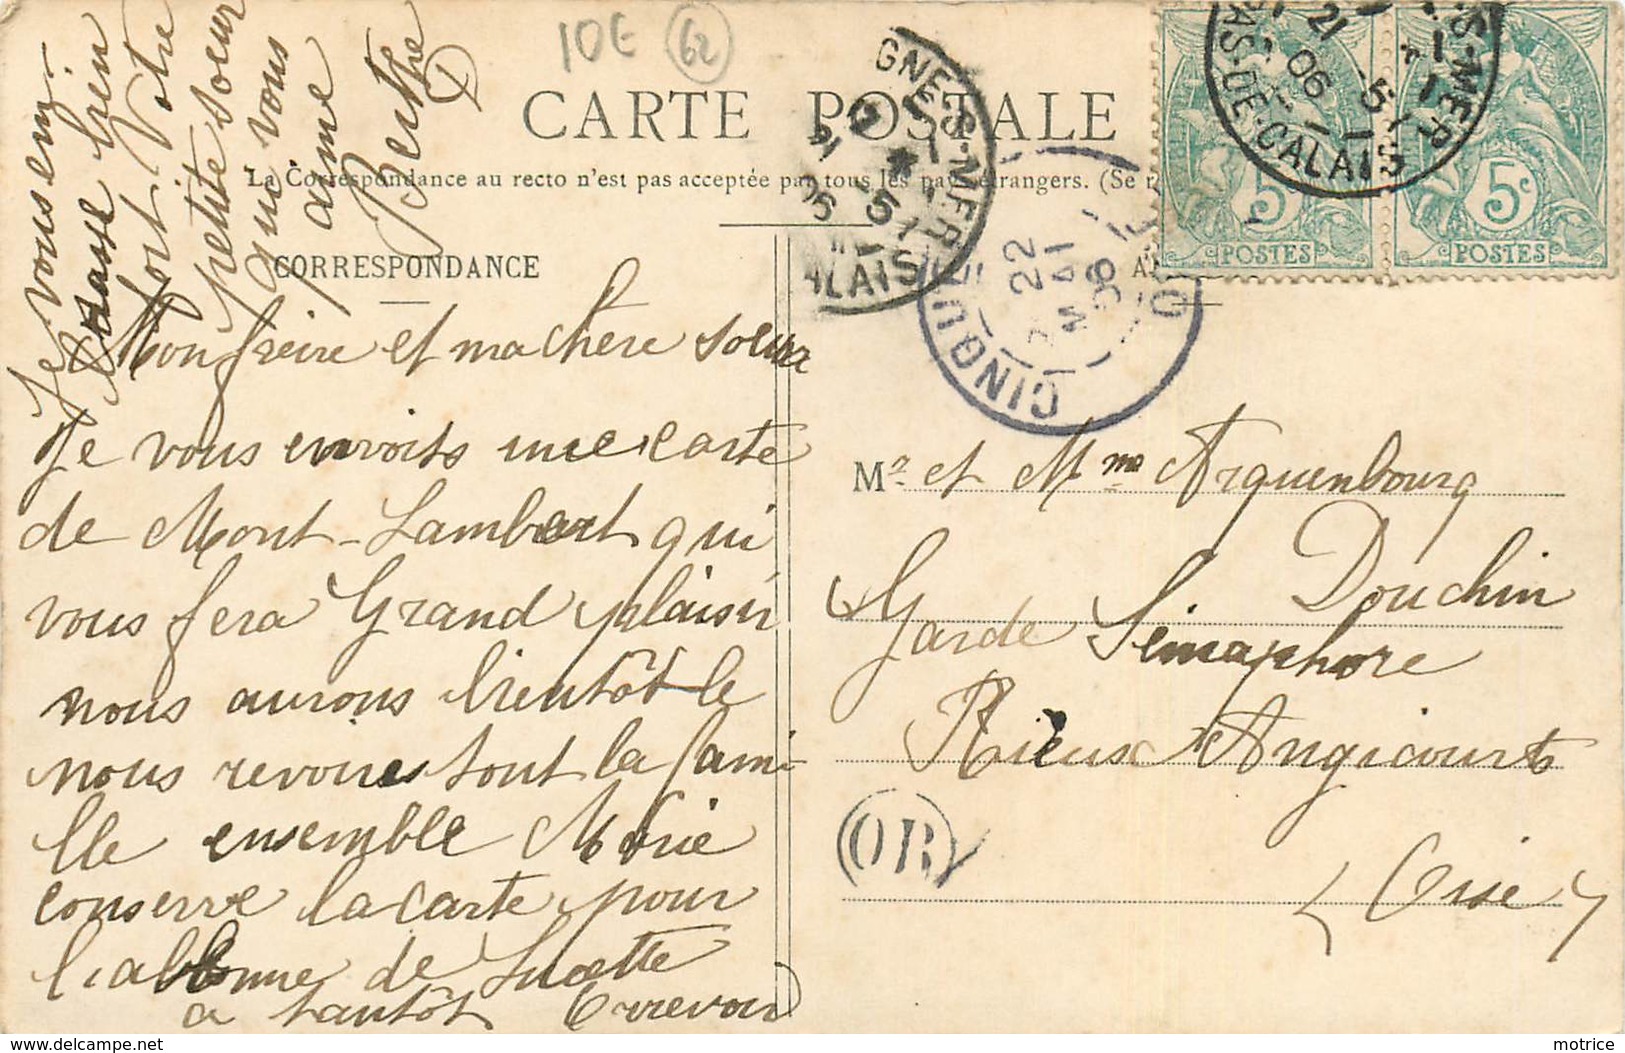 10E (62)
CARTE POSTALE
La Correspondance au recto n'est pas acceptée par tous les pays étrangers. (Se r
CORRESPONDANCE
Je vous em-
brasse bien
fort Votre
petite soeur
que vous
aime
Berthe
D
Mon freire et ma chère soeur
Je vous envoits une carte
de Mont-Lambert qui
vous fera Grand plaisir
nous aurons bientôt le
nous revoires tout la fami-
lle ensemble Marie
conserve la carte pour
l'abbonne de Lucette
a tantôt Orrevoir
GNES-S-MER
21 5 06
ALAIS
S-MER
21 5 06
PAS-DE-CALAIS
5c
POSTES
5c
POSTES
CINQUEUX
22 MAI 06
OISE
Mr et Mme Arquenbourg
Douchin
Garde Sémaphore
Rieux Angicourt
(Oise)
OR
motrice
delcampe.net